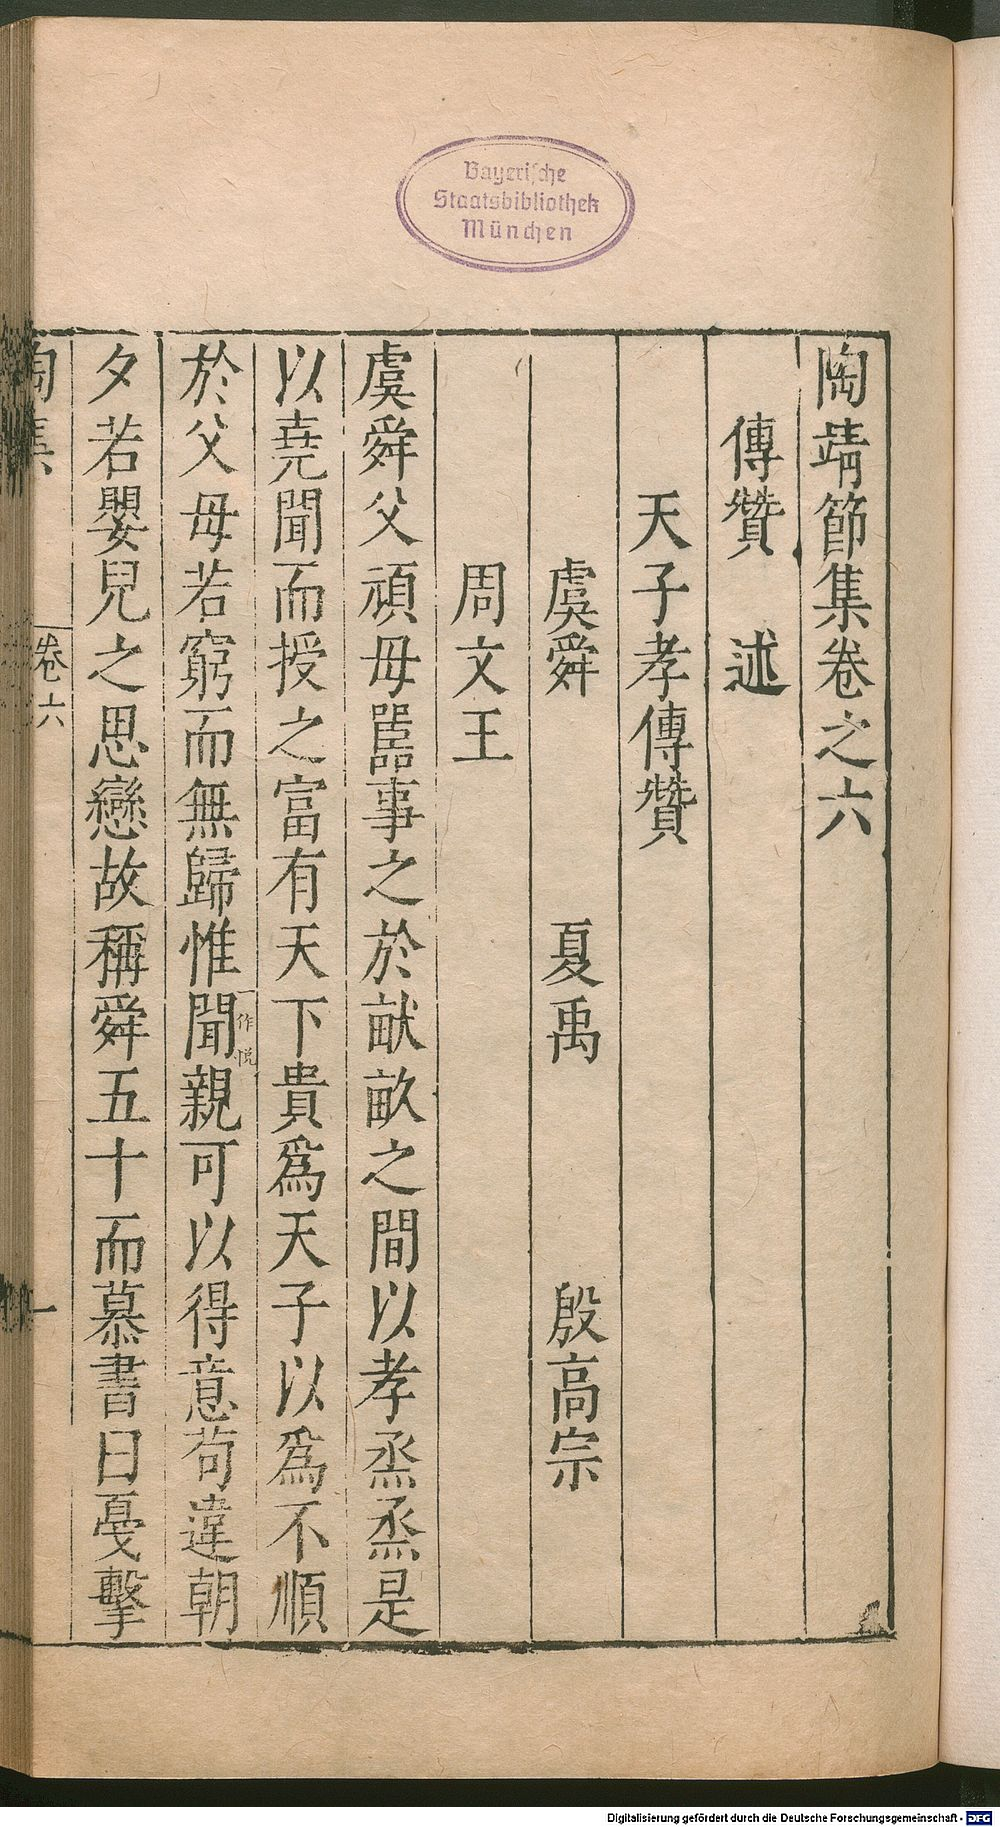 Bayerische
Staatsbibliothek
München
陶靖節集卷之六
傳贊　述
天子孝傳贊
虞舜　夏禹　殷高宗
周文王
虞舜父頑母嚚事之於畎畝之間以孝烝烝是
以堯聞而授之富有天下貴爲天子以爲不順
於父母若窮而無歸惟聞一作悅親可以得意苟違朝
夕若嬰兒之思戀故稱舜五十而慕書曰戞擊
陶集
卷六
一
Digitalisierung gefördert durch die Deutsche Forschungsgemeinschaft - DFG